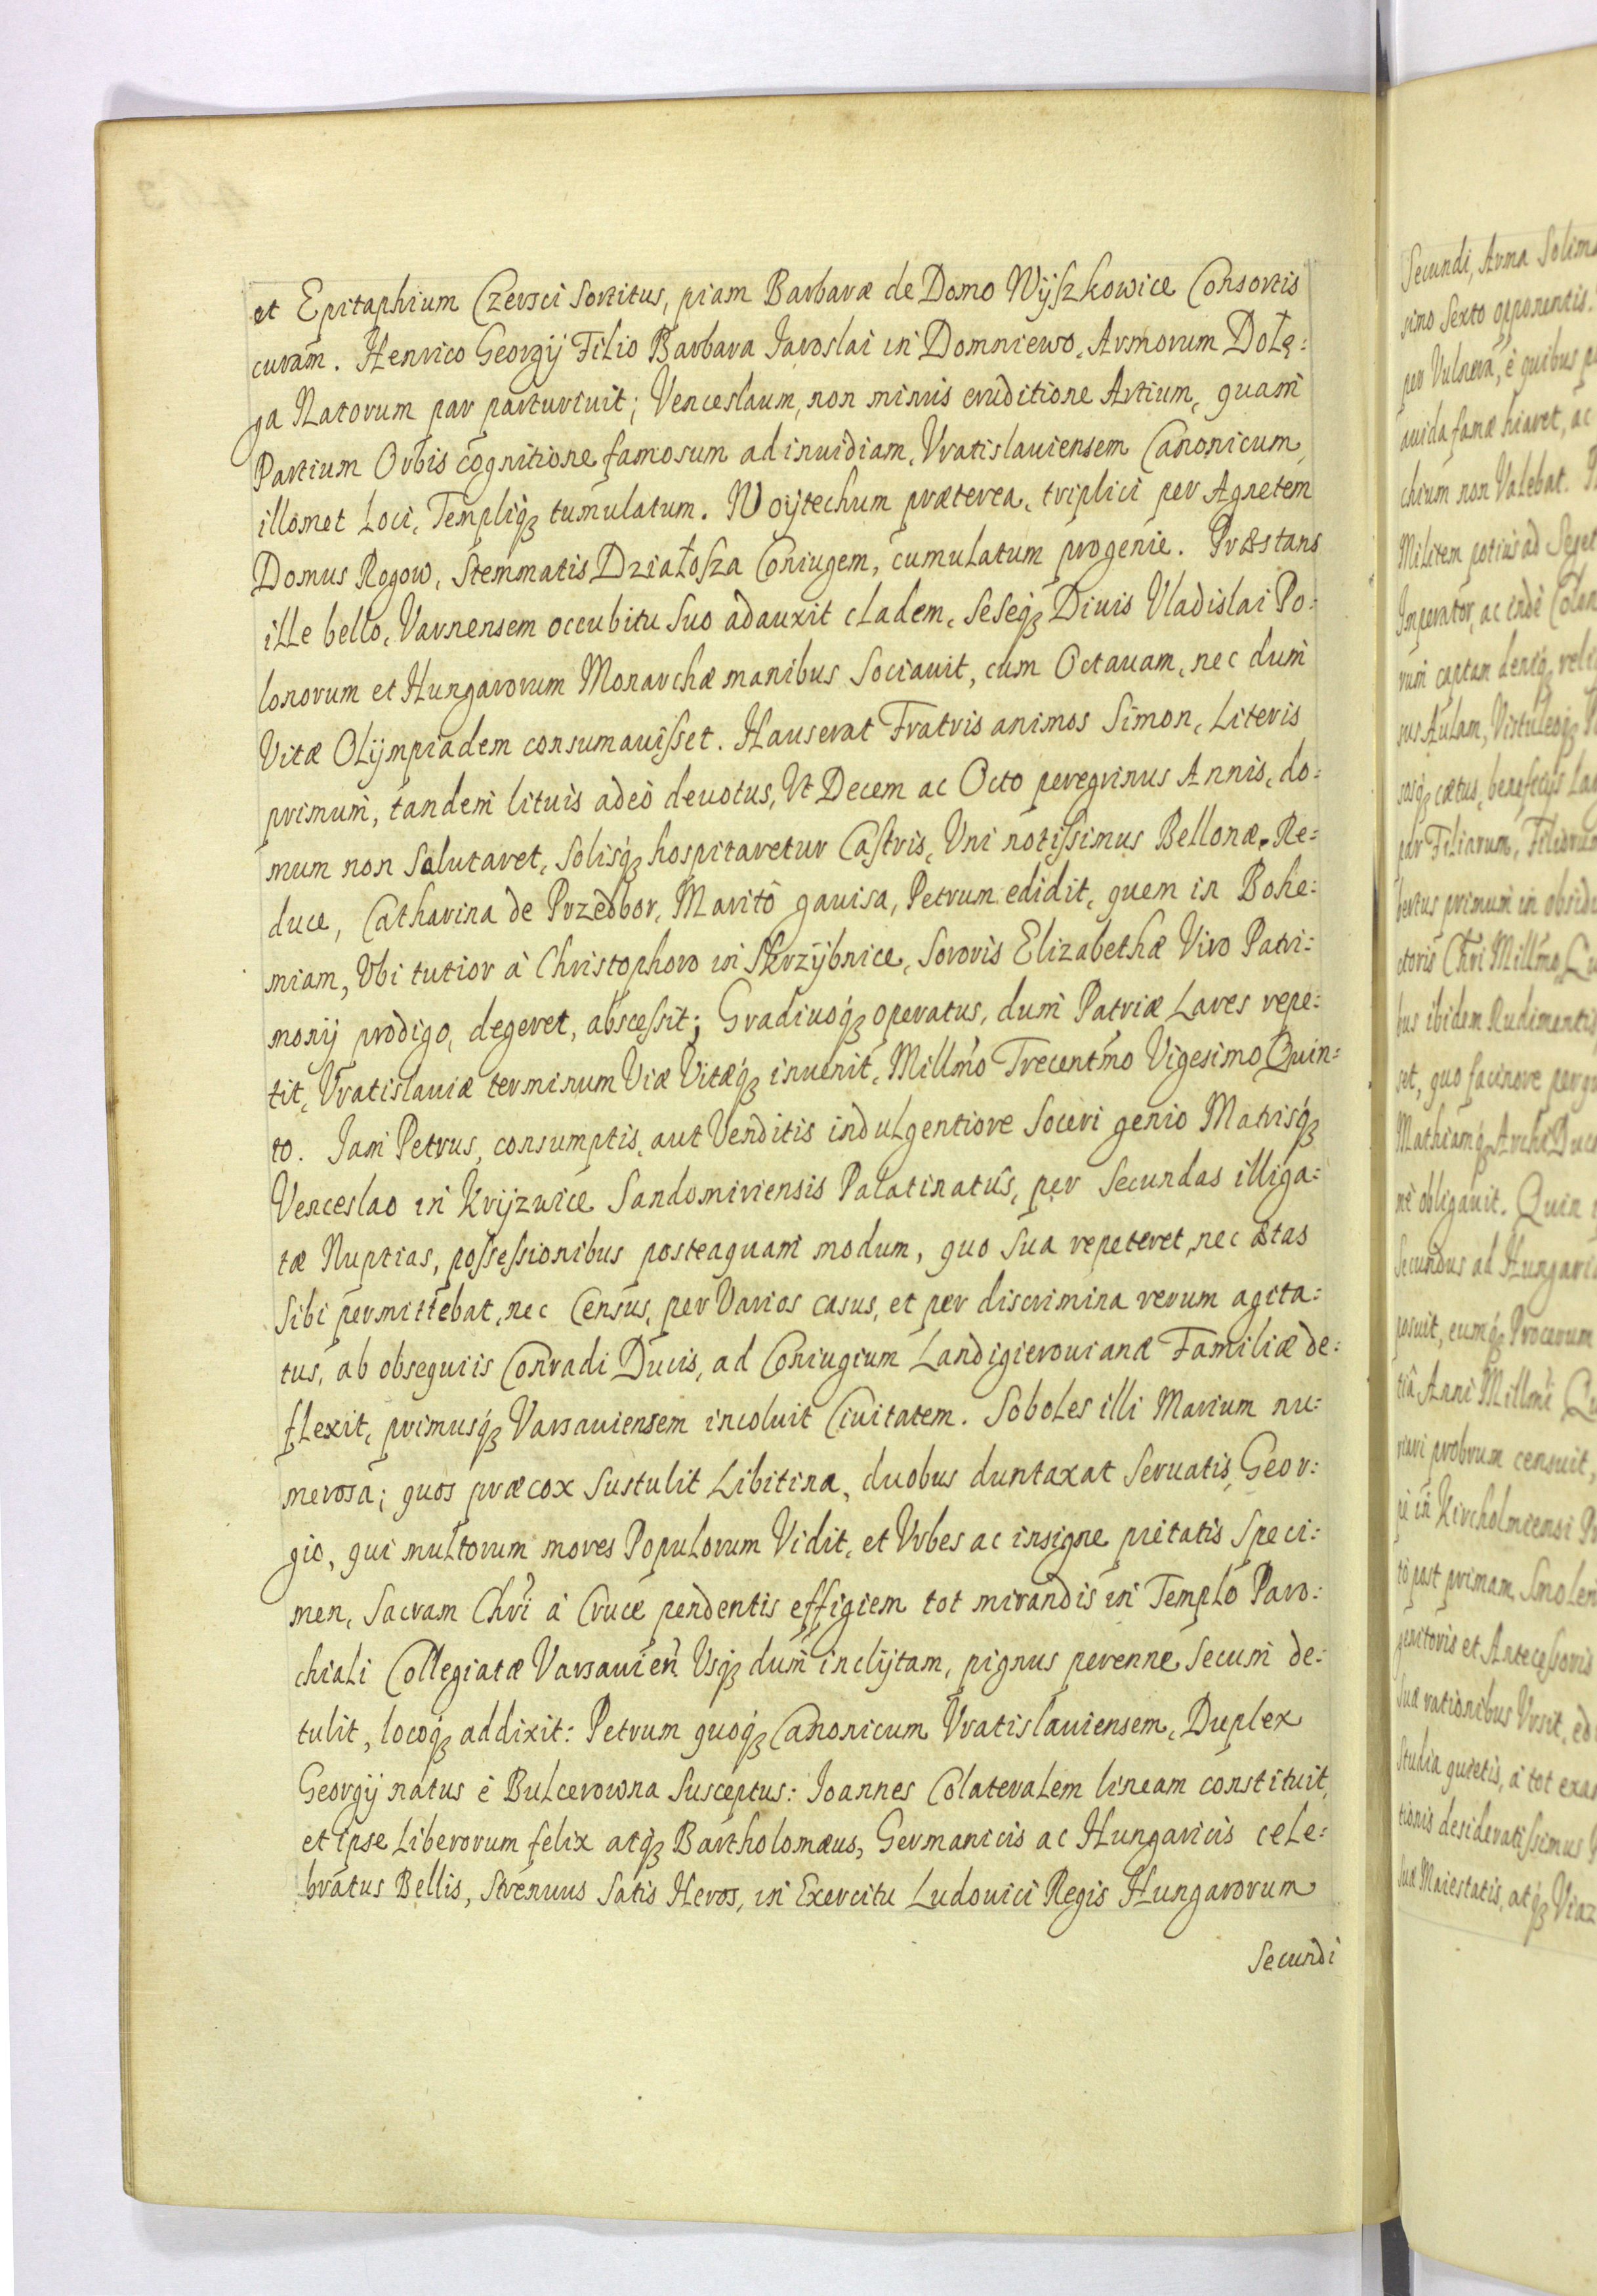 et Epitaphium Czersci sortitus, piam Barbaræ de Domo Wÿszkowice Consortis
curam. Henrico Georgÿ Filio Barbara Jaroslai in Domniewo, Armorum Dołę:
ga Natorum par parturiuit; Venceslaum, non minus eruditione Artium, quam
Partium Orbis cognitione famosum ad inuidiam, Vratislauiensem Canonicum,
illomet Loci, Templiq₃ tumulatum. Woÿtechum præterea, triplici per Agnetem
Domus Rogow, Stemmatis Działosza Coniugem, cumulatum progenie. Præstans
ille bello, Varnensem occubitu suo adauxit cladem, seseq₃ Diuis Vladislai Po:
lonorum et Hungarorum Monarchæ manibus sociauit, cum Octauam, nec dum
Vitæ Olÿmpiadem consumauisset. Hauserat Fratris animos Simon, Literis
primum, tandem lituis adeò deuotus, Vt Decem ac Octo peregrinus Annis, do:
mum non salutaret, solisq₃ hospitaretur Castris, Vni notissimus Bellonæ. Re:
duce, Catharina de Przedbor, Maritô gauisa, Petrum edidit, quem in Bohe:
miam, Vbi tutior à Christophoro in Skrzÿbnice, Sororis Elizabethæ Viro Patri:
monÿ prodigo, degeret, abscessit; Gradiuoq₃ operatus, dum Patriæ Lares repe:
tit, Vratislauiæ terminum Viæ Vitæq₃ inuenit, Millmo Trecentmo Vigesimo Quin:
to. Jam Petrus, consumptis, aut Venditis indulgentiore Soceri genio Matrisq₃
Venceslao in Krÿzwice Sandomiriensis Palatinatus, per Secundas illiga:
tæ Nuptias, possessionibus posteaquam modum, quo sua repeteret, nec ætas
sibi permittebat, nec Census, per Varios casus, et per discrimina rerum agita:
tus, ab obsequiis Conradi Ducis, ad Coniugium Landigierouianæ Familiæ de:
flexit, primusq₃ Varsauiensem incoluit Ciuitatem. Soboles illi Marium nu:
merosa; quos præcox sustulit Libitina, duobus duntaxat seruatis, Geor:
gio, qui multorum mores Populorum Vidit, et Vrbes ac insigne pietatis speci:
men, Sacram Chri à Cruce pendentis effigiem tot mirandis in Templo Paro:
chiali Collegiatæ Varsauien Vsq₃ dum inclÿtam, pignus perenne secum de:
tulit, locoq₃ addixit: Petrum quoq₃ Canonicum Vratislauiensem, Duplex
Georgÿ natus è Bulcerowna susceptus: Joannes Colateralem lineam constituit,
et ipse Liberorum felix atq₃ Bartholomæus, Germanicis ac Hungaricis cele:
bratus Bellis, Strenuus satis Heros, in Exercitu Ludouici Regis Hungarorum
Secundi
Secundi, Arma
simo Sexto opponentis.
per Vulnera, è quibus
auida famæ hiaret, ac
chium non Valebat.
Militem potius ad
Imperator, ac indè
rum captandeniq₃
sus Aulam,
sosq₃ cætus, beneficÿs
par Filiarum,
bertus primum in
ctoris Chri Millmo
bus ibidem Rudimentis
set, quo facinore
Mathiamq₃ Archi
nè obligauit. Quin
Secundus ad
posuit, eumq₃ Procerum
tiâ Anni Millmi
probrum censuit,
in Kircholmiensi
tò post primam
genitoris et Antecessoris
suæ rationibus Vrsit,
Studia quietis, à tot
tionis desideratissimus
suæ Maiestatis, atq₃